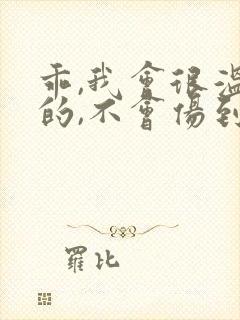 乖,我會很溫
的,不會傷到
羅比